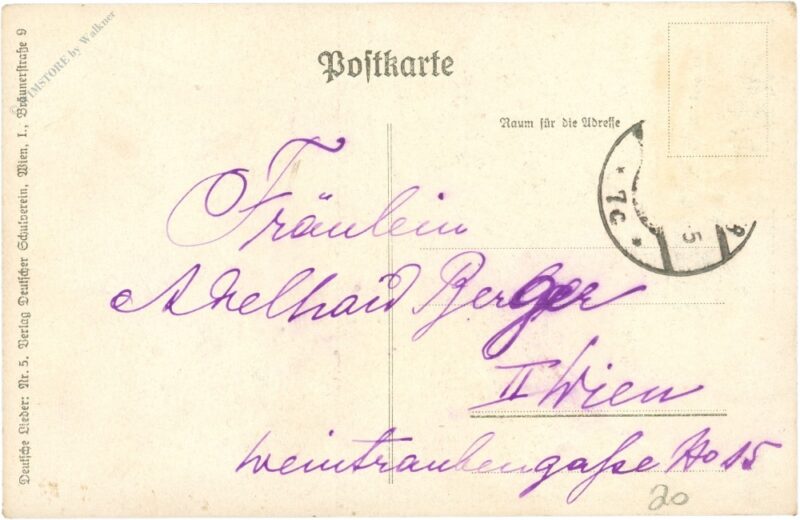 Postkarte
Raum für die Adresse
Fräulein
Adelhaid Berger
II Wien
Weintraubengaße No 15
20
* 7c *
5
Deutsche Lieder: Nr. 5. Verlag Deutscher Schulverein, Wien, I., Bräunerstraße 9
TMSTORE by Walkner